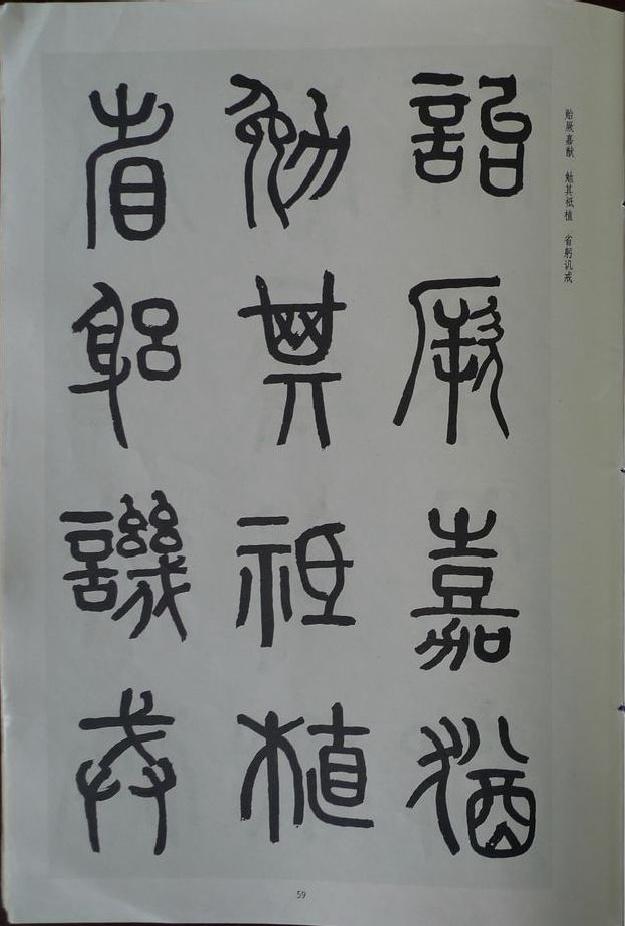 贻厥嘉猷 勉其祗植 省躬讥戒
詒厥嘉猶
勉其祗植
省躬譏戒
59